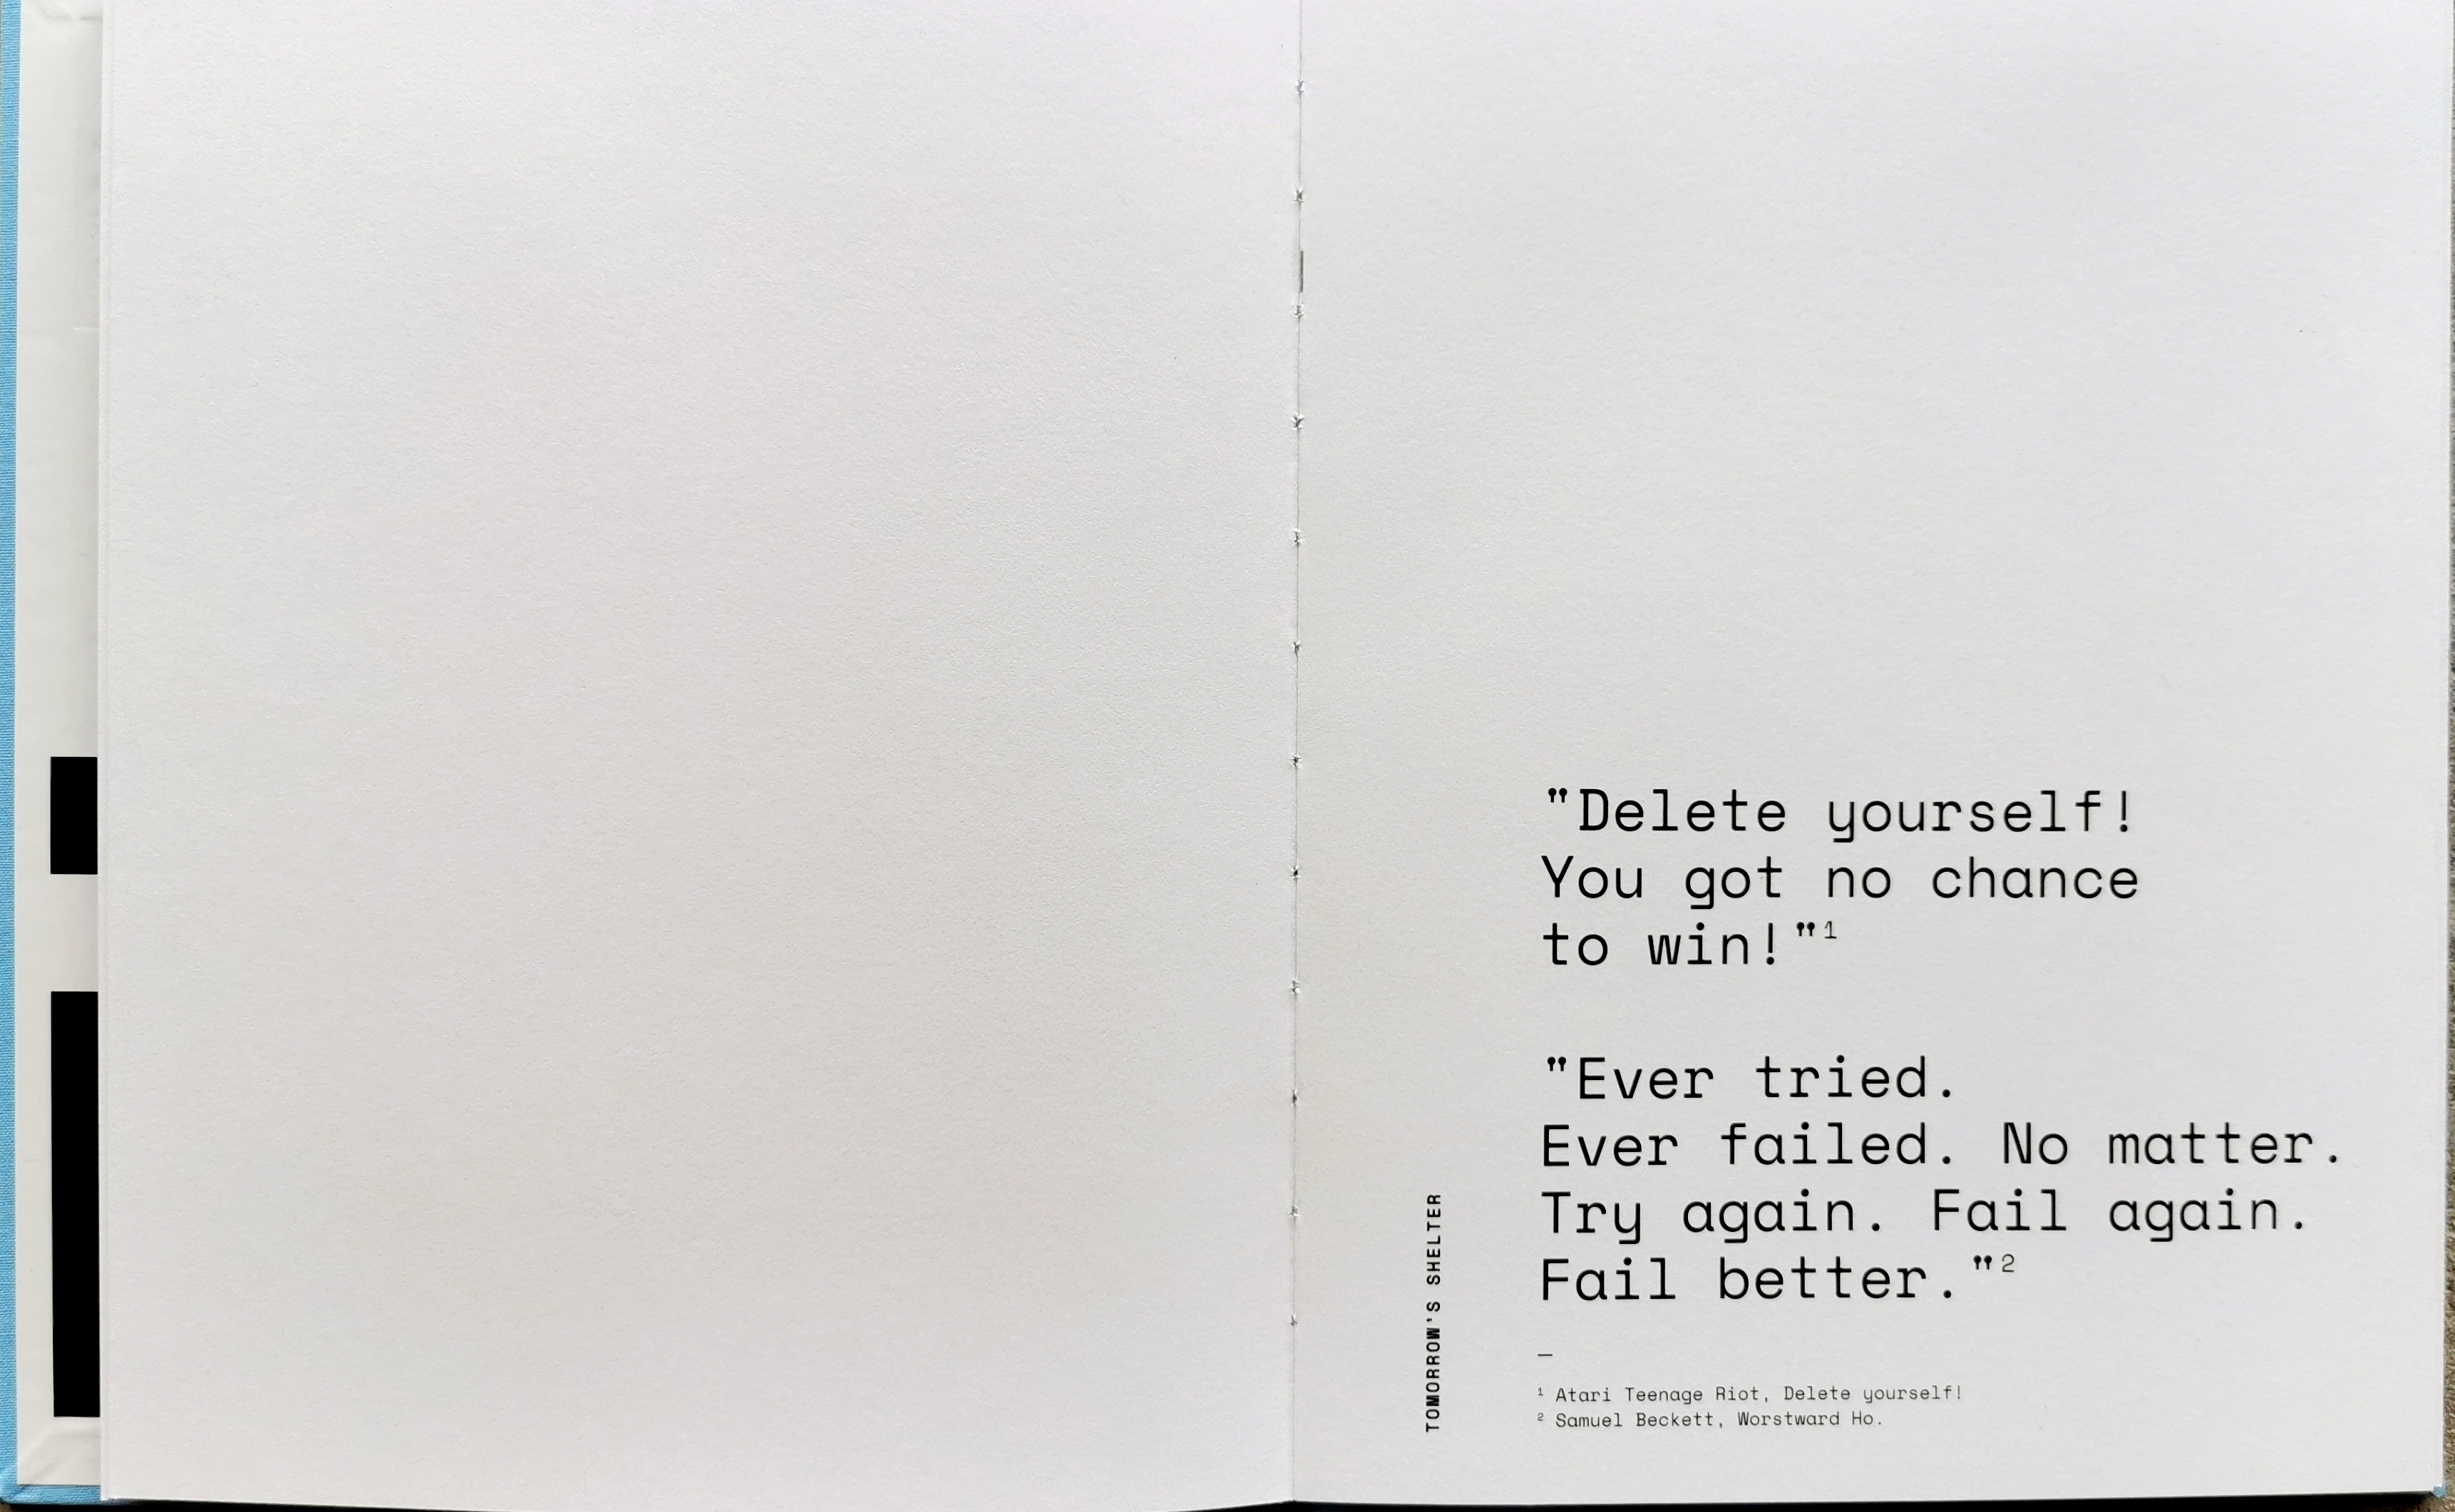 "Delete yourself!
You got no chance
to win!"¹
"Ever tried.
Ever failed. No matter.
Try again. Fail again.
Fail better."²
—
¹ Atari Teenage Riot, Delete yourself!
² Samuel Beckett, Worstward Ho.
TOMORROW'S SHELTER